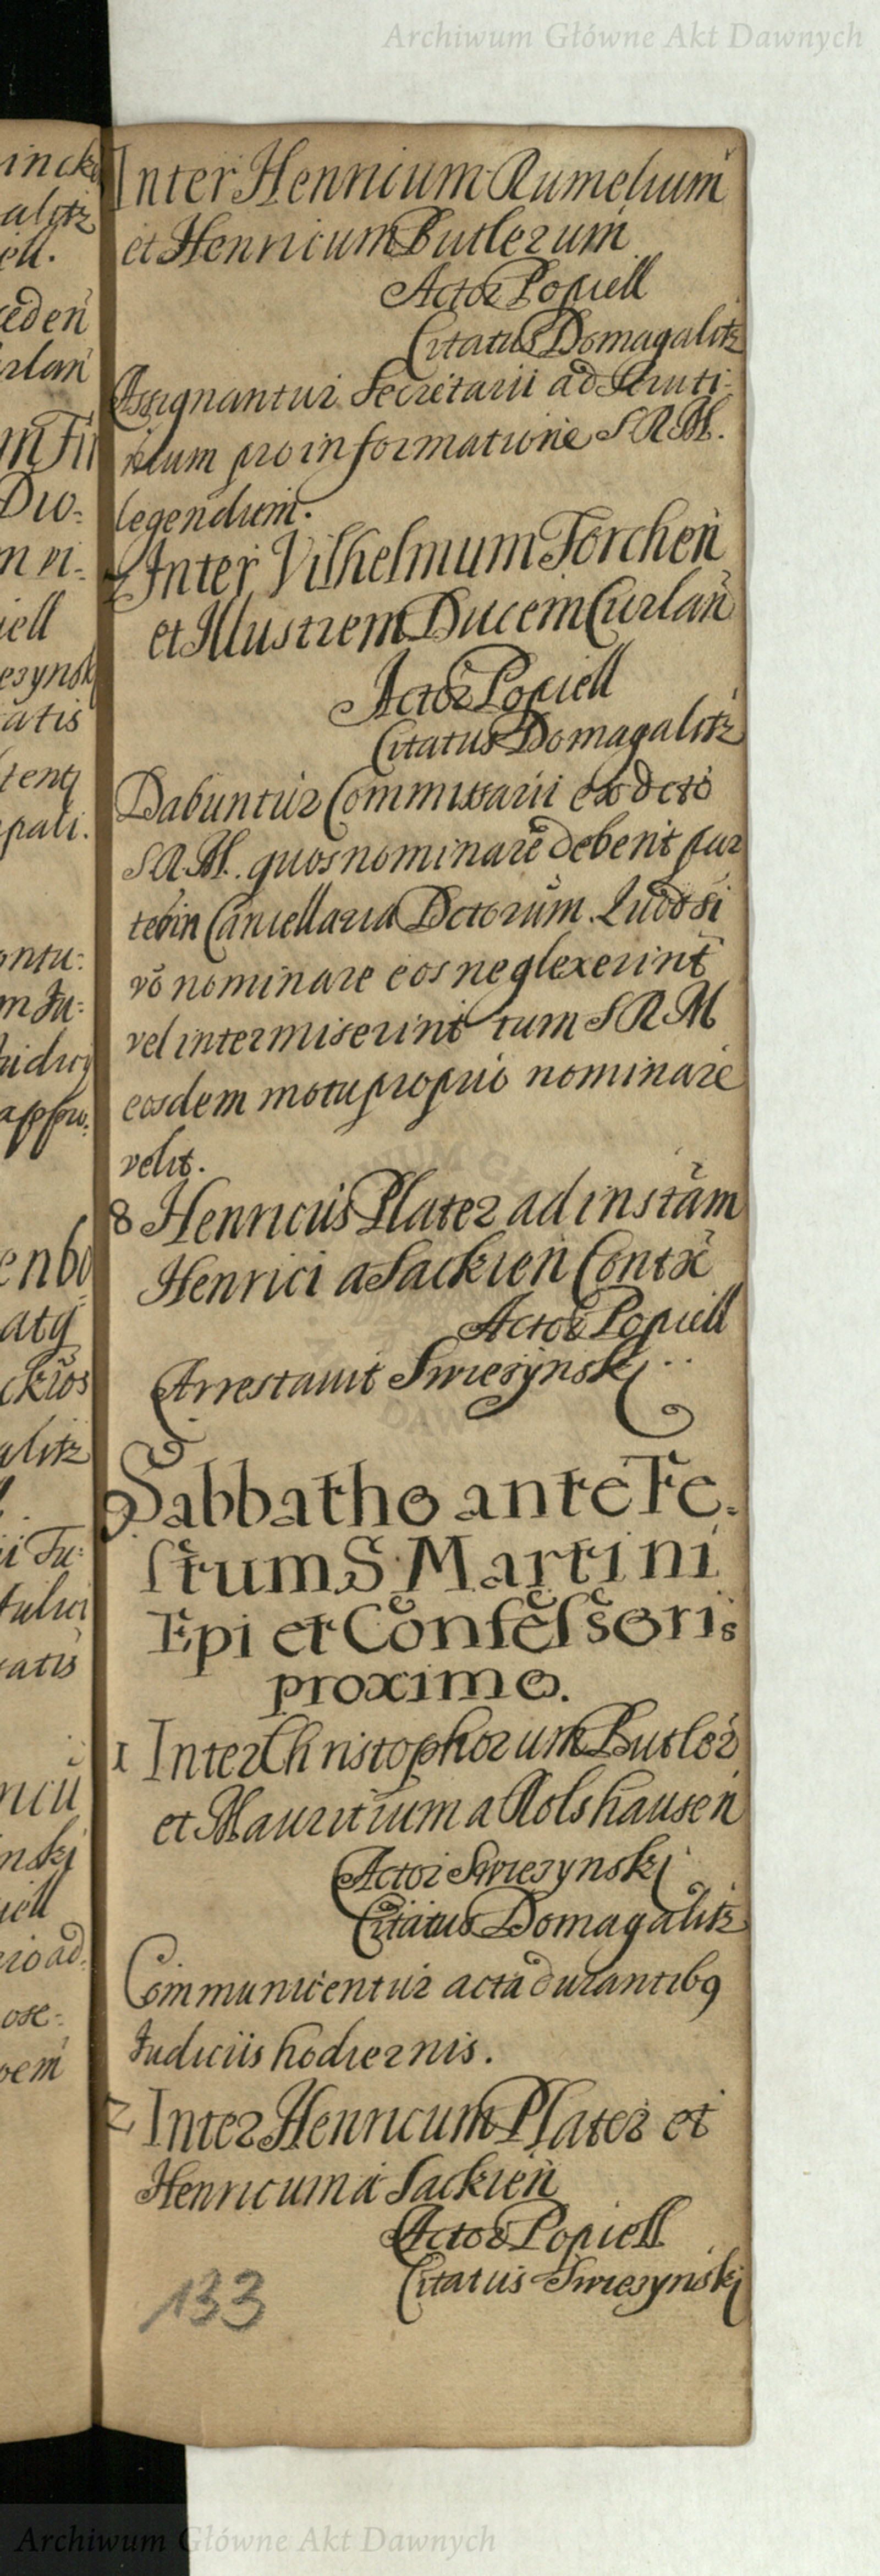 Archiwum Główne Akt Dawnych
Inter Henricum Rumelium
et Henricum Butlerum
Actor Popiell
Citatus Domagalitz
Assignantur Secretarii ad Scruti-
nium pro informatione S R M.
legendum.
7 Inter Vilhelmum Torchen
et Illustrem Ducem Curlan
Actor Popiell
Citatus Domagalitz
Dabuntur Commissarii ex dcto
S R M. quos nominare debent par
tes in Cancellaria Dctorum. Quod si
vo nominare eos neglexerint
vel intermiserint tum S R M
eosdem motu proprio nominare
velit.
8 Henricus Plater ad instam
Henrici a Sackien Contx
Actor Popiell
Arrestavit Swiesynski
Sabbatho ante Fe-
stum S. Martini
Epi et Confessoris
proximo.
1 Inter Christophorum Butler
et Mauritium a Rolshausen
Actor Swiesynski
Citatus Domagalitz
Communicentur acta durantibq
Iudiciis hodiernis.
2 Inter Henricum Plater et
Henricum a Sackien
Actor Popiell
Citatus Swiesynski
133
inck
alitz
ell.
ceden
rlan
m Fir
Duo-
m ni-
iell
esynsk
atis
tenq
pali.
ontu-
m Iu-
hidrij
appro-
enbo
atq
ckios
alitz
ii Iu-
tulici
ratis
ricu
nski
iell
ero ad
ose-
oem
Archiwum Główne Akt Dawnych